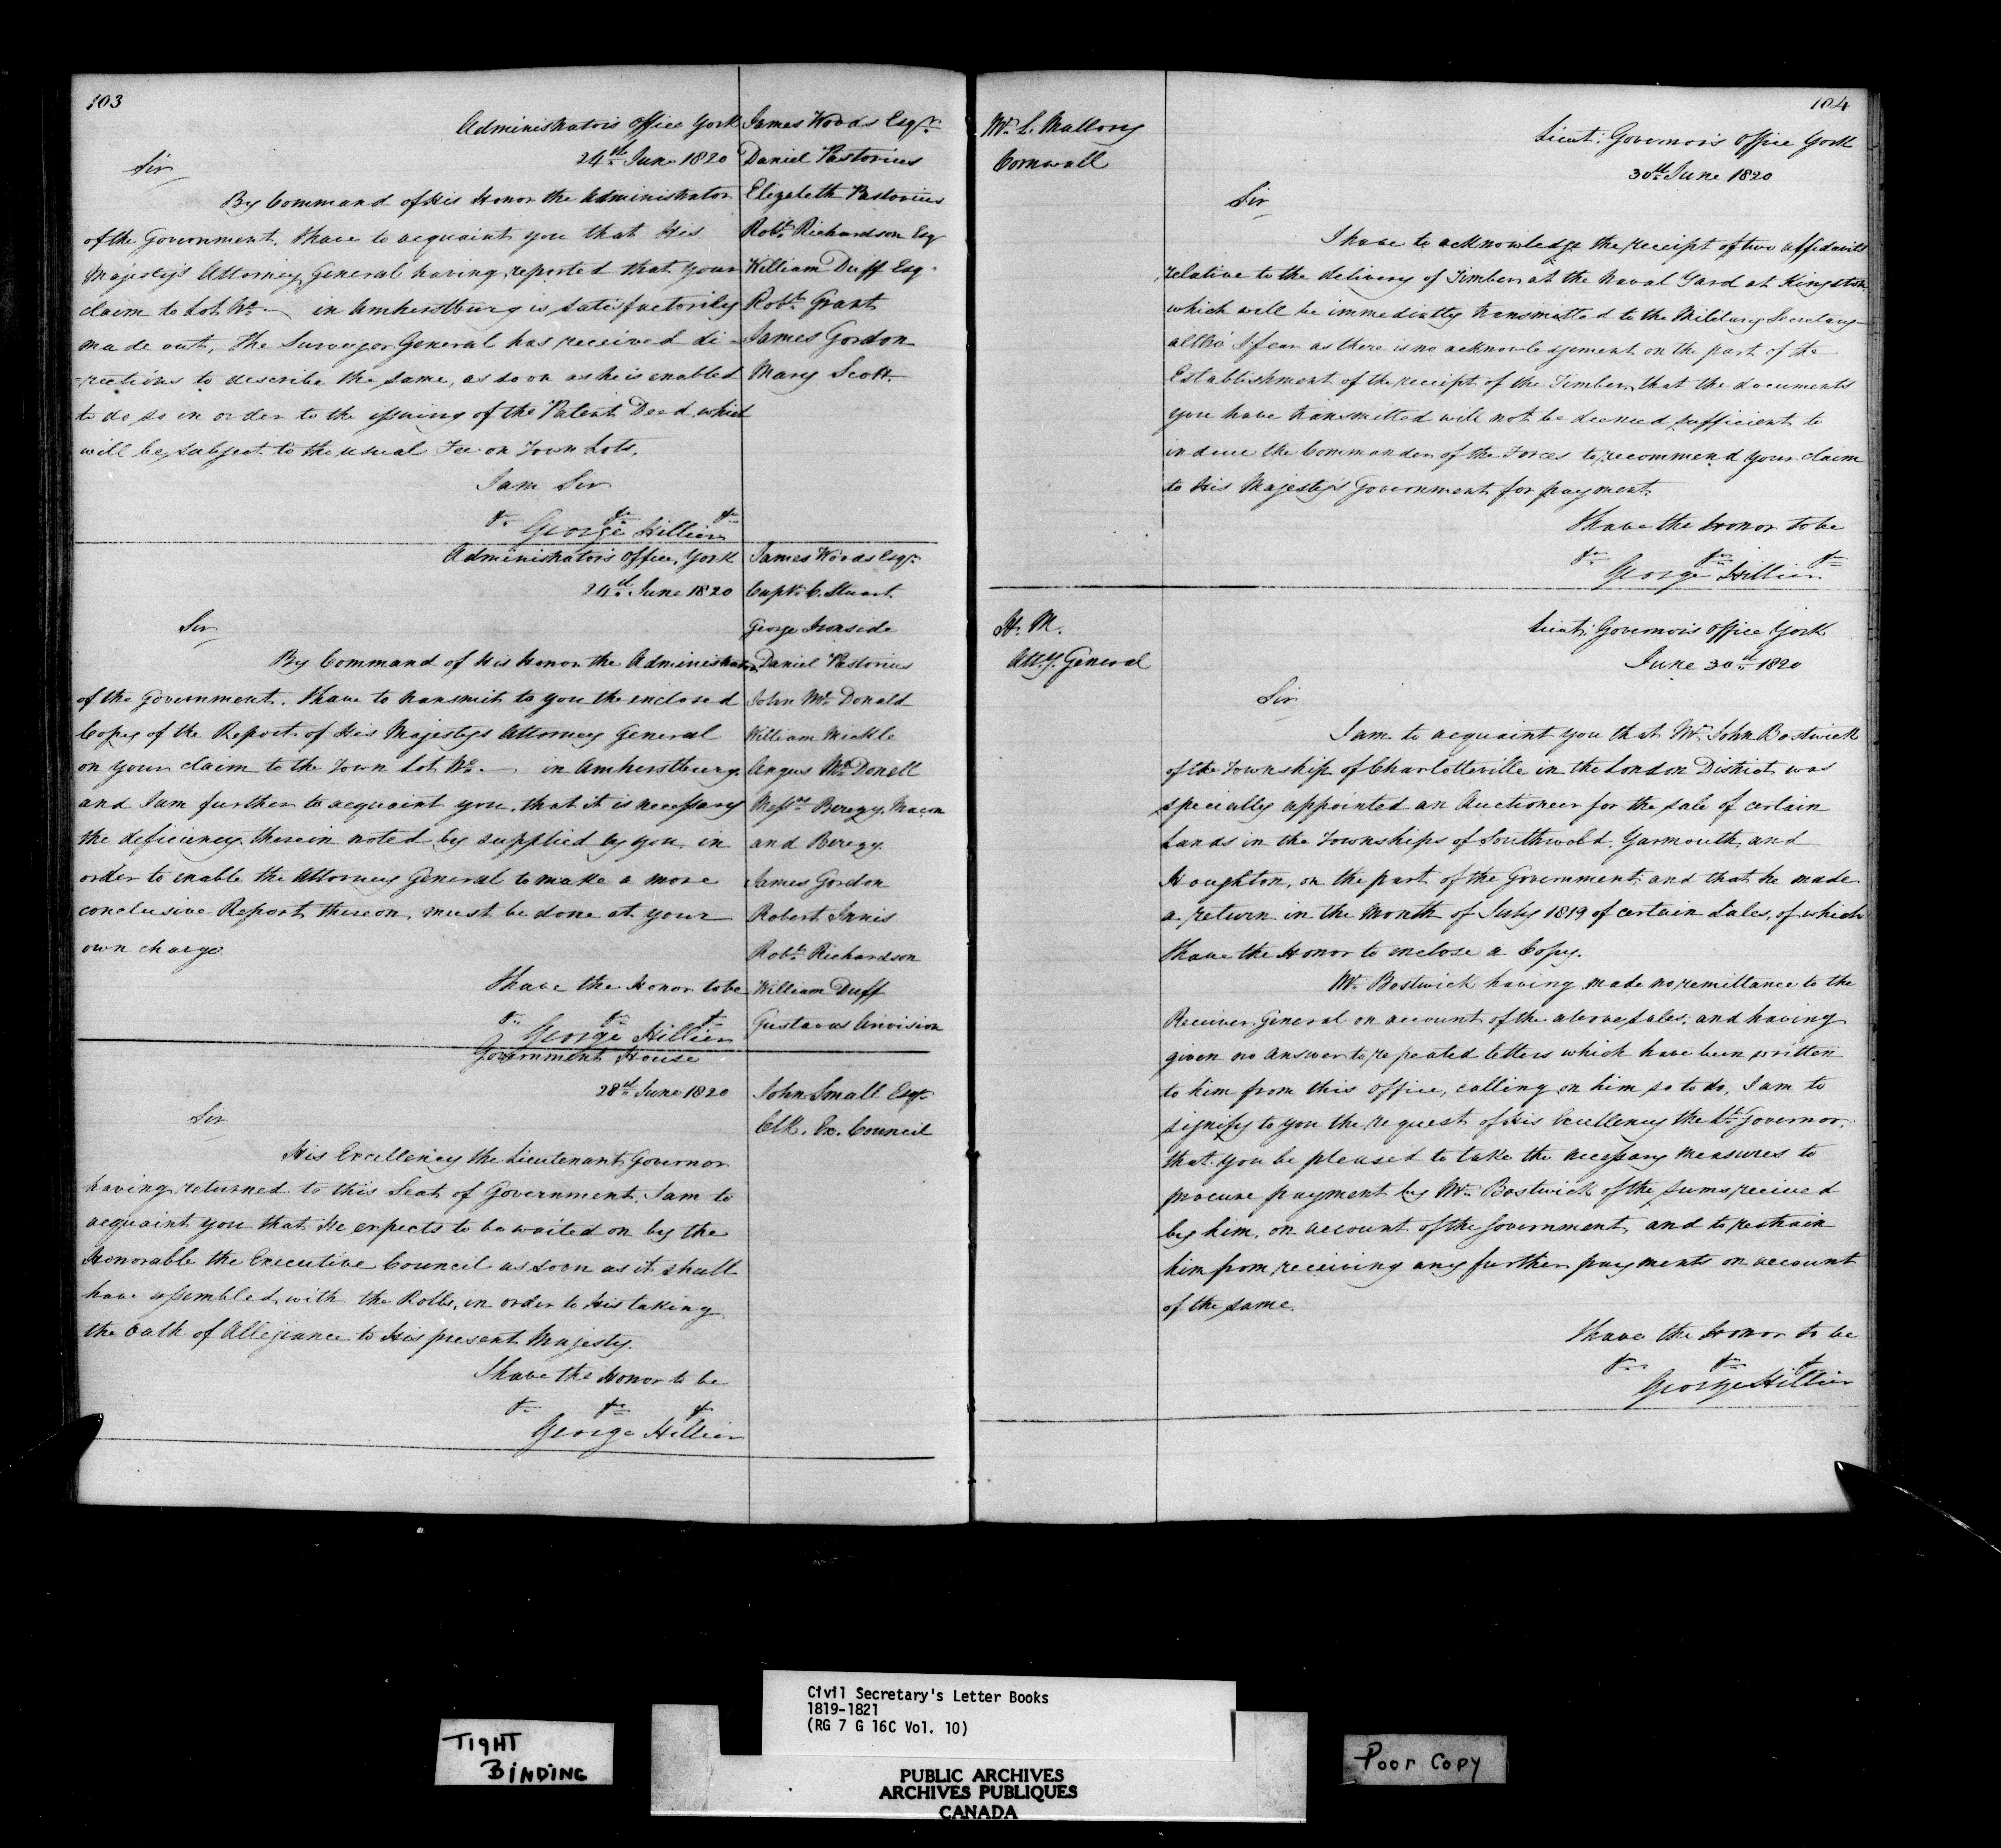 103
Administrators Office York
24th June 1820
Sir
By Command of His Honor the Administrator
of the Government, I have to acquaint you that His
Majesty's Attorney General having reported that your
claim to Lot No — in Amherstburg is satisfactorily
made out, The Surveyor General has received di-
-rections to describe the same, as soon as he is enabled
to do so in order to the issuing of the Patent Deed which
will be subject to the usual Fee on Town Lots.
I am Sir
&c &c &c
George Hillier
James Woods Esqr
Daniel Pastorius
Elizabeth Pastorius
Robt Richardson Esq
William Duff Esq
Robt Grant
James Gordon
Mary Scott
Administrators Office, York
24th June 1820
Sir
By Command of His Honor the Administrator
of the Government. I have to transmit to you the enclosed
Copy of the Report of His Majestys Attorney General
on your claim to the Town Lot No. — in Amherstburg.
and I am further to acquaint you, that it is necessary
the deficiency therein noted by supplied by you, in
order to enable the Attorney General to make a more
conclusive Report thereon, must be done at your
own charge
I have the Honor to be
&c &c &c
George Hillier
James Woods Esqr
Captn C. Stuart
George Ironside
Daniel Pastorius
John Mc Donald
William Mickle
Angus Mc Donell
Messrs Berczy, Macon
and Berczy
James Gordon
Robert Innis
Robt Richardson
William Duff
Gustavus
Government House
28th June 1820
Sir
His Excellency the Lieutenant Governor
having returned to this Seat of Government, I am to
acquaint you that He expects to be waited on by the
Honorable the Executive Council as soon as it shall
have assembled, with the Rolls, in order to His taking
the Oath of Allegiance to His present Majesty.
I have the Honor to be
&c &c &c
George Hillier
John Small Esqr
Clk. Ex. Council
104
Mr L. Mallory
Cornwall
Lieut. Governors Office York
30th June 1820
Sir
I have to acknowledge the receipt of two affidavits
relative to the delivery of Timber at the Naval Yard at Kingston
which will be immediatly transmitted to the Military Secretary
altho' I fear as there is no acknowledgement on the part of the
Establishment of the receipt of the Timber, that the documents
you have transmitted will not be deemed sufficient to
induce the Commander of the Forces to recommend your claim
to His Majesty's Government for payment
I have the Honor to be
&c &c &c
George Hillier
H. M.
Atty. General
Lieut. Governors Office York
June 30th 1820
Sir
I am to acquaint you that Mr John Bostwick
of the Township of Charlotteville in the London District was
specially appointed an Auctioneer for the sale of certain
Lands in the Townships of Southwold, Yarmouth, and
Houghton, on the part of the Government; and that he made
a return in the Month of July 1819 of certain Sales, of which
I have the Honor to enclose a Copy.
Mr Bostwick having made no remittance to the
Receiver General on account of the above Sales; and having
given no answer to repeated letters which have been written
to him from this Office, calling on him so to do, I am to
signify to you the request of His Excellency the Lt Governor,
that you be pleased to take the necessary measures to
procure payment by Mr Bostwick of the sums received
by him, on account of the Government, and to restrain
him from receiving any further payments on account
of the same.
I have the Honor to be
&c &c &c
George Hillier
TIGHT
BINDING
Civil Secretary's Letter Books
1819-1821
(RG 7 G 16C Vol. 10)
PUBLIC ARCHIVES
ARCHIVES PUBLIQUES
CANADA
Poor Copy